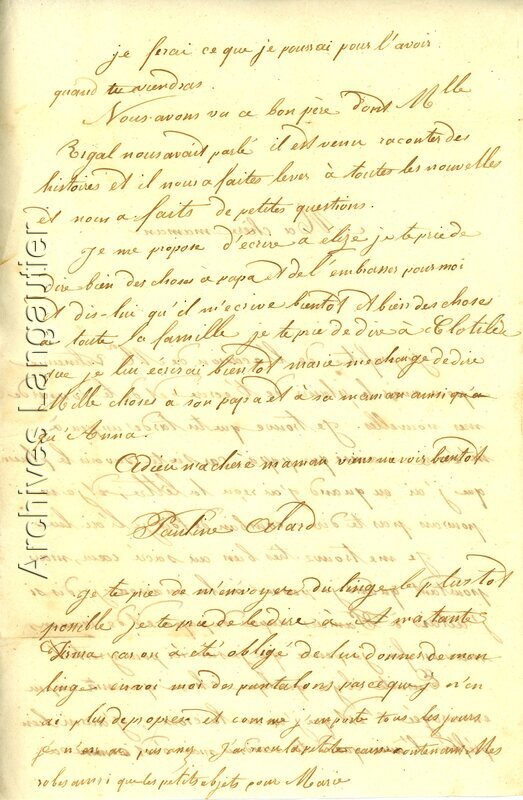 je ferai ce que je pourrai pour l'avoir
quand tu viendras.
Nous avons vu ce bon père dont Mlle
Rigal nous avait parlé il est venu raconter des
histoires et il nous a faites lever à toutes les nouvelles
et nous a faits de petites questions.
Je me propose d'écrire a elize je te prie de
dire bien des choses à papa et de l'embrasser pour moi
et dis-lui qu'il m'ecrive bientot et bien des choses
a toute la famille je te prie de dire à Clotilde
que je lui ecrirai bientot marie me charge de dire
Mille choses à son papa et à sa maman ainsi qu'a
qu'Anna.
Adieu ma chère maman viens me voir bientot
Pauline Alard
Je te prie de m'envoyer du linge le plus tot
possible je te prie de le dire à ma tante
car on à été obligé de lui donner de mon
linge envoi moi des pantalons parceque j'n'en
ai plus de propres et comme j'en porte tous les jours
je n'en ai pas la petite caisse contenant Mes
robes ainsi que les petits objets pour Marie
Archives Langautier